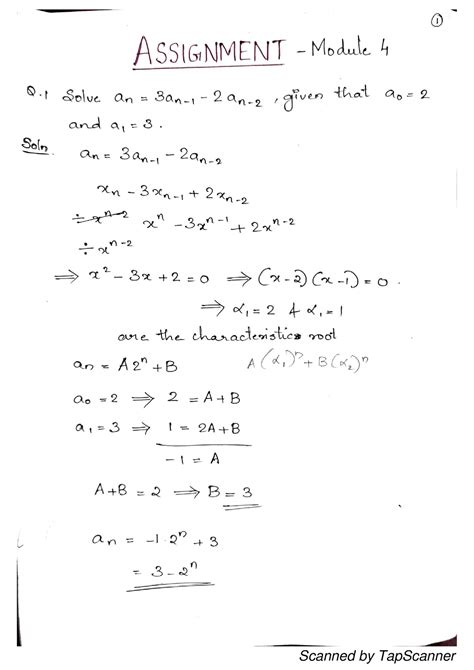 ①
ASSIGNMENT - Module 4
Q.1 Solve aₙ = 3aₙ₋₁ - 2aₙ₋₂, given that a₀ = 2
and a₁ = 3.
Soln. aₙ = 3aₙ₋₁ - 2aₙ₋₂
xₙ - 3xₙ₋₁ + 2xₙ₋₂
÷ xⁿ⁻² xⁿ - 3xⁿ⁻¹ + 2xⁿ⁻²
÷ xⁿ⁻²
⇒ x² - 3x + 2 = 0 ⇒ (x-2)(x-1) = 0.
⇒ α₁ = 2 & α₁ = 1
are the characteristics root
aₙ = A2ⁿ + B A(α₁)ⁿ + B(α₂)ⁿ
a₀ = 2 ⇒ 2 = A+B
a₁ = 3 ⇒ 1 = 2A+B
-1 = A
A+B = 2 ⇒ B = 3
aₙ = -1·2ⁿ + 3
= 3 - 2ⁿ
Scanned by TapScanner